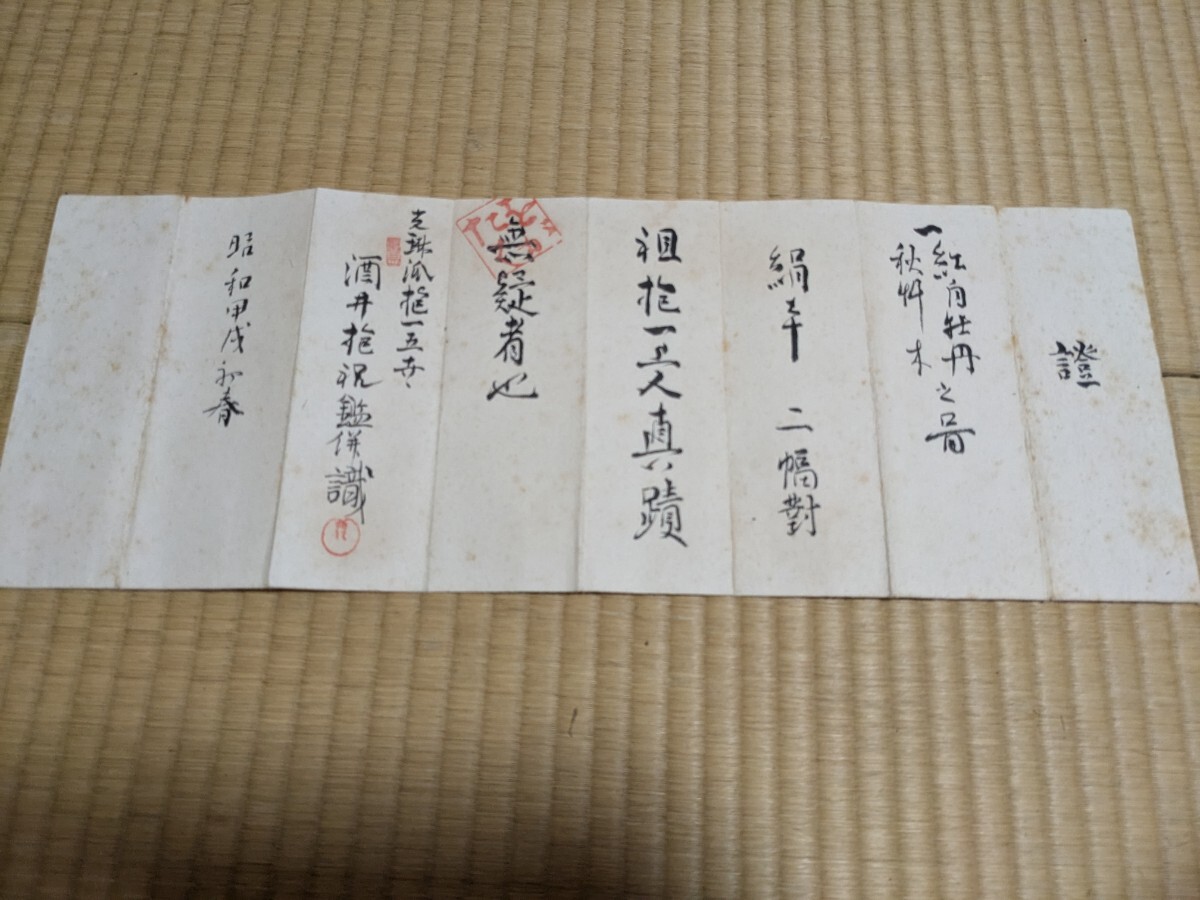 證
一紅白牡丹之圖
秋艸木
絹本 二幅對
祖抱一上人真蹟
無疑者也
光琳派抱一五世
酒井抱祝鑑併識
昭和甲戌初春